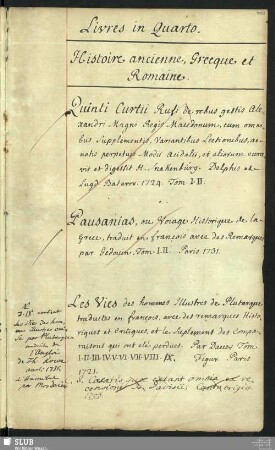 Livres in Quarto.
Histoire ancienne, Grecque et
Romaine.
Quinti Curtii Rufi de rebus gestis Ale
xandri Magni Regis Macedonum, cum om
bus Supplementis, Variantibus Lectionibus, ac
notis perpetuis Modii Acidalii, et aliorum
et digestit H. Snakenburg. Delphis et
Lugd Batavor. 1724. Tom I-II.
Pausanias, ou Voiage Historique de la
Grece, traduit en françois avec des Remarques
par Gedouin. Tom I-II Paris 1731.
Les Vies des hommes Illustres de Plutarque
traduites en françois, avec des remarques Histo
riques et Critiques, et le Suplement des Compa
raisons qui ont eté perdues. Par Dacier Tom
I-II-III-IV-V-VI-VII-VIII-IX. Figur Paris
1721.
J. Caesaris quae extant omnia ex re
censione
SLUB